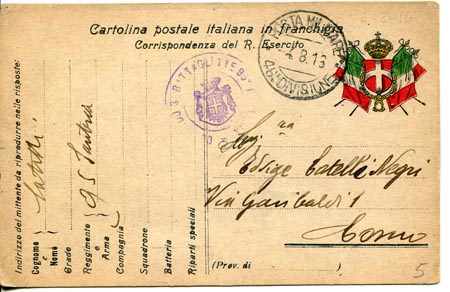 3-8-16
Cartolina postale italiana in franchigia
Corrispondenza del R. Esercito
POSTA MILITARE
8.16
46ª DIVISIONE
BATTAGLIONE
Sig.ra
Edvige Catelli Negri
Via Garibaldi 1
Como
(Prov. di )
5
Indirizzo del mittente da riprodurre nelle risposte:
Cognome e Nome
Grado
Reggimento
Arma
Compagnia
Squadrone
Batteria
Riparti speciali